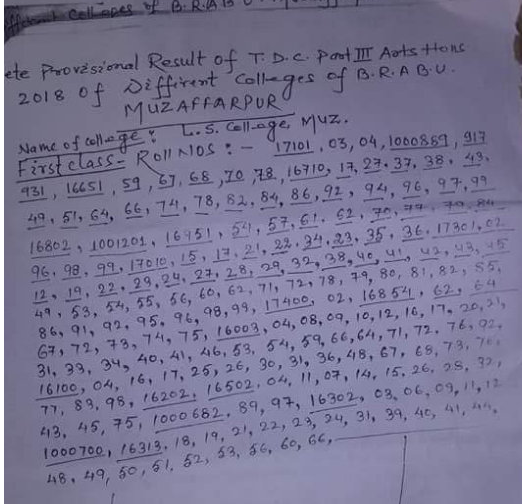 Different Colleges of B.R.A.B.U.
ete Provisional Result of T.D.C. Part III Arts Hons
2018 of Different Colleges of B.R.A.B.U.
MUZAFFARPUR
Name of college : L.S. College, Muz.
First class - Roll Nos : - 17101, 03, 04, 1000889, 917
931, 16651, 59, 67, 68, 70, 78, 16710, 17, 27, 37, 38, 43,
49, 51, 64, 66, 74, 78, 82, 84, 86, 92, 94, 96, 97, 99
16802, 1001201, 16951, 54, 57, 61, 62, 70, 77, 79, 84
96, 98, 99, 17010, 15, 17, 21, 22, 34, 23, 35, 36, 17301, 02
12, 19, 22, 23, 24, 27, 28, 29, 32, 38, 40, 41, 42, 43, 45
49, 53, 54, 55, 56, 60, 62, 71, 72, 78, 79, 80, 81, 82, 85,
86, 91, 92, 95, 96, 98, 99, 17400, 02, 16854, 62, 64
67, 72, 73, 74, 75, 16003, 04, 08, 09, 10, 12, 16, 17, 20, 21,
31, 33, 34, 40, 41, 46, 53, 54, 59, 66, 64, 71, 72, 76, 92,
16100, 04, 16, 17, 25, 26, 30, 31, 36, 48, 67, 68, 73, 76,
77, 83, 98, 16202, 16502, 04, 11, 07, 14, 15, 26, 28, 32,
43, 45, 75, 1000682, 89, 97, 16302, 03, 06, 09, 11, 12
1000700, 16313, 18, 19, 21, 22, 23, 24, 31, 39, 40, 41, 44,
48, 49, 50, 51, 52, 53, 56, 60, 66,